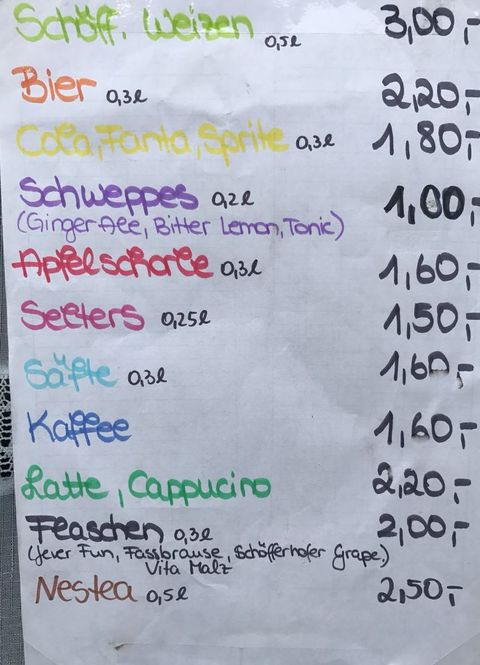 Schöff. Weizen 0,5l 3,00,-
Bier 0,3l 2,20,-
Cola, Fanta, Sprite 0,3l 1,80,-
Schweppes 0,2l 1,00,-
(Ginger Ale, Bitter Lemon, Tonic)
Apfelschorle 0,3l 1,60,-
Selters 0,25l 1,50,-
Säfte 0,3l 1,60,-
Kaffee 1,60,-
Latte, Cappucino 2,20,-
Flaschen 0,3l 2,00,-
(Jever Fun, Fassbrause, Schöfferhofer Grape,)
Vita Malz
Nestea 0,5l 2,50,-